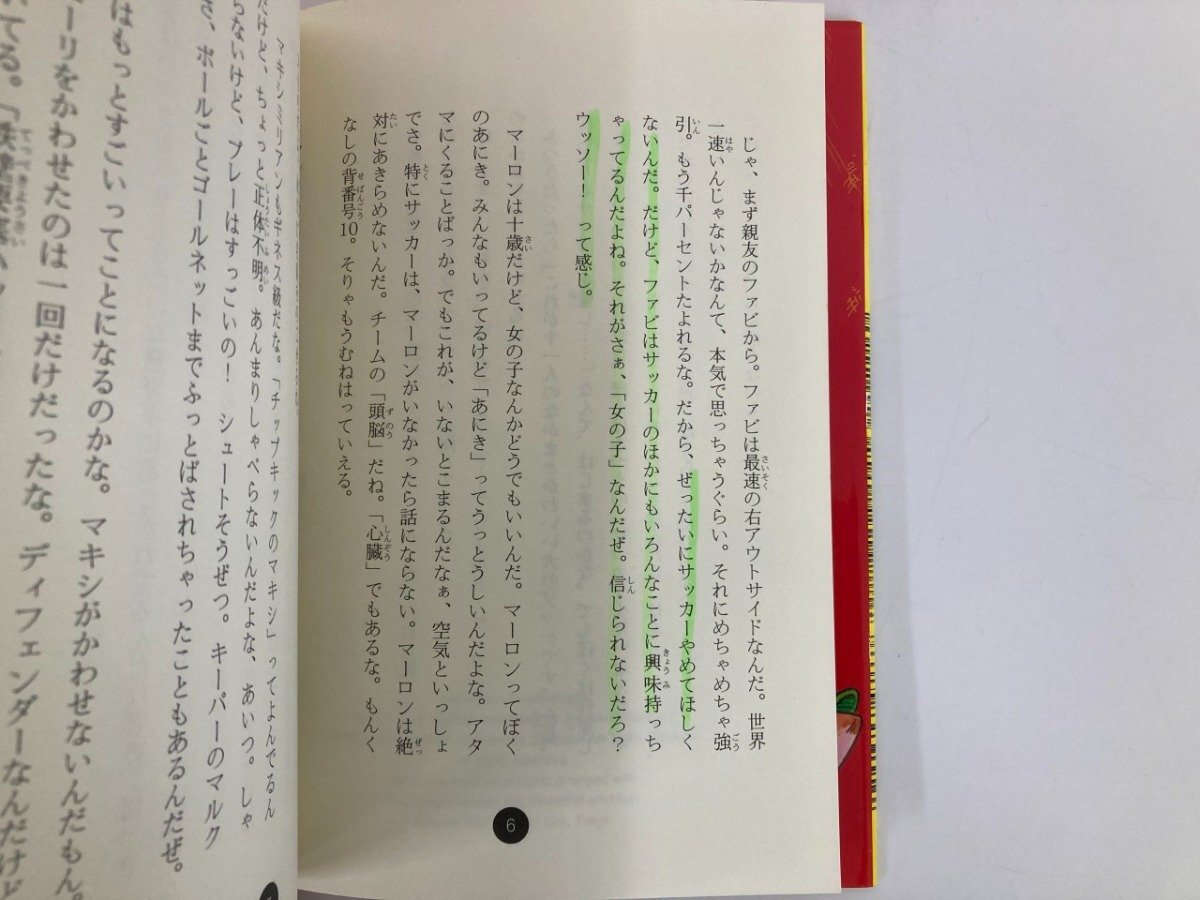 じゃ、まず親友のファビから。ファビは最速の右アウトサイドなんだ。世界
一速いんじゃないかなんて、本気で思っちゃうぐらい。それにめちゃめちゃ強
引。もう千パーセントたよれるな。だから、ぜったいにサッカーやめてほしく
ないんだ。だけど、ファビはサッカーのほかにもいろんなことに興味持っち
ゃってるんだよね。それがさぁ、「女の子」なんだぜ。信じられないだろ？
ウッソー！　って感じ。
マーロンは十歳だけど、女の子なんかどうでもいいんだ。マーロンってぼく
のあにき。みんなもいってるけど「あにき」ってうっとうしいんだよな。アタ
マにくることばっか。でもこれが、いないとこまるんだなぁ、空気といっしょ
でさ。特にサッカーは、マーロンがいなかったら話にならない。マーロンは絶
対にあきらめないんだ。チームの「頭脳」だね。「心臓」でもあるな。もんく
なしの背番号10。そりゃもうむねはっていえる。
6
マキシミリアンもギネス級だな。「チップキックのマキシ」ってよんでるん
だけど、ちょっと正体不明。あんまりしゃべらないんだよな、あいつ。しゃ
らないけど、プレーはすっごいの！　シュートそうぜつ。キーパーのマルク
さ、ボールごとゴールネットまでふっとばされちゃったこともあるんだぜ。
はもっとすごいってことになるのかな。マキシがかわせないんだもん。
ーリをかわせたのは一回だけだったな。ディフェンダーなんだけど
てる。